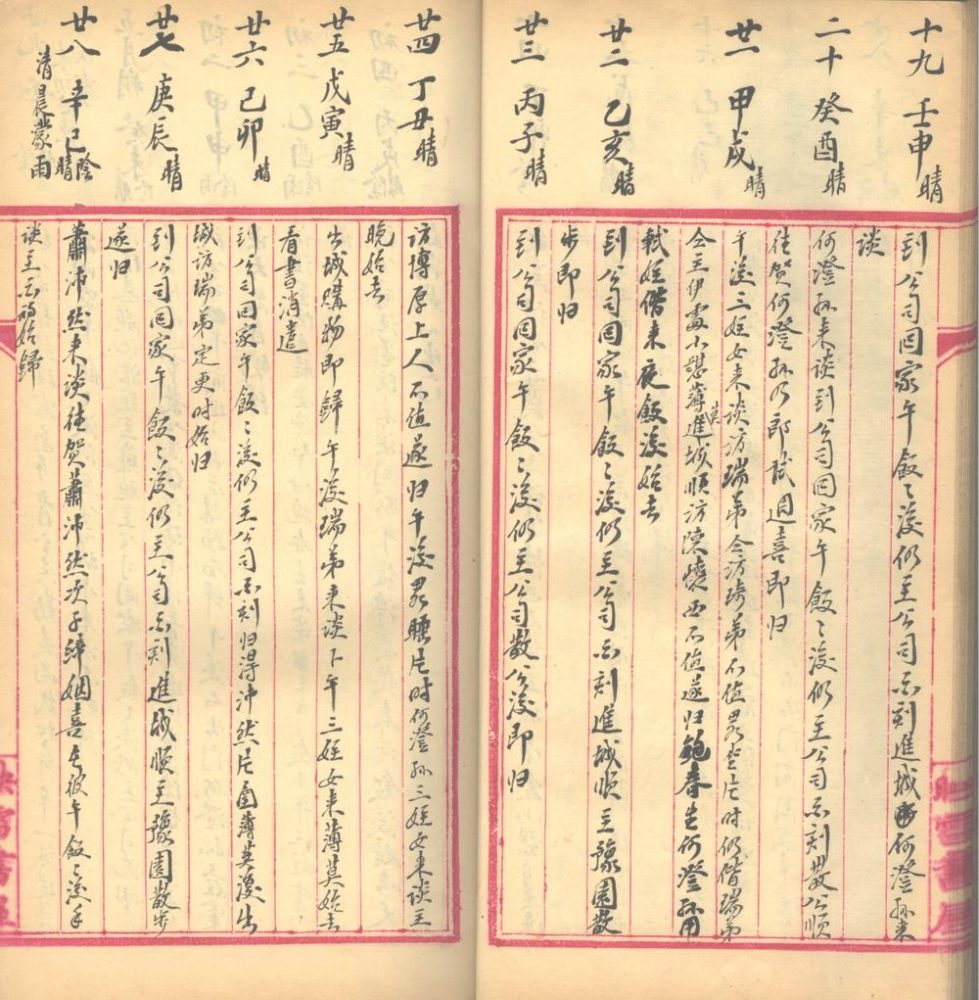 十九 壬申 晴
到公司回家午飯〻後仍至公司酉刻進城 何澄孫來
談
二十 癸酉 晴
何澄孫來談到公司回家午飯〻後仍至公司酉刻散公順
往賀何澄孫乃郎試週喜即归
廿一 甲戌 晴
午後三姪女來談訪瑞弟仝訪琦弟不值畧坐片时仍偕瑞弟
仝至伊處小憩薄暮進城順訪陳 西不值遂归鮑春生何澄孫用
軾姪偕來夜飯後始去
廿二 乙亥 晴
到公司回家午飯〻後仍至公司酉刻進城順至豫園散
步即归
廿三 丙子 晴
到公司回家午飯〻後仍至公司散公後即归
廿四 丁丑 晴
訪博厚上人不值遂归午後畧睡片时何澄孫三姪女來談至
晚始去
廿五 戊寅 晴
出城購物即歸午後瑞弟來談下午三姪女來薄莫始去
看書消遣
廿六 己卯 晴
到公司回家午飯〻後仍至公司酉刻归得沖然片函薄莫後出
城訪瑞弟定更时始归
廿七 庚辰 晴
到公司回家午飯〻後仍至公司酉刻進城順至豫園散步
遂归
廿八 辛巳 陰晴
清晨濛雨
蕭沛然來談往賀蕭沛然次子締姻喜在彼午飯〻後手
談至酉初始歸